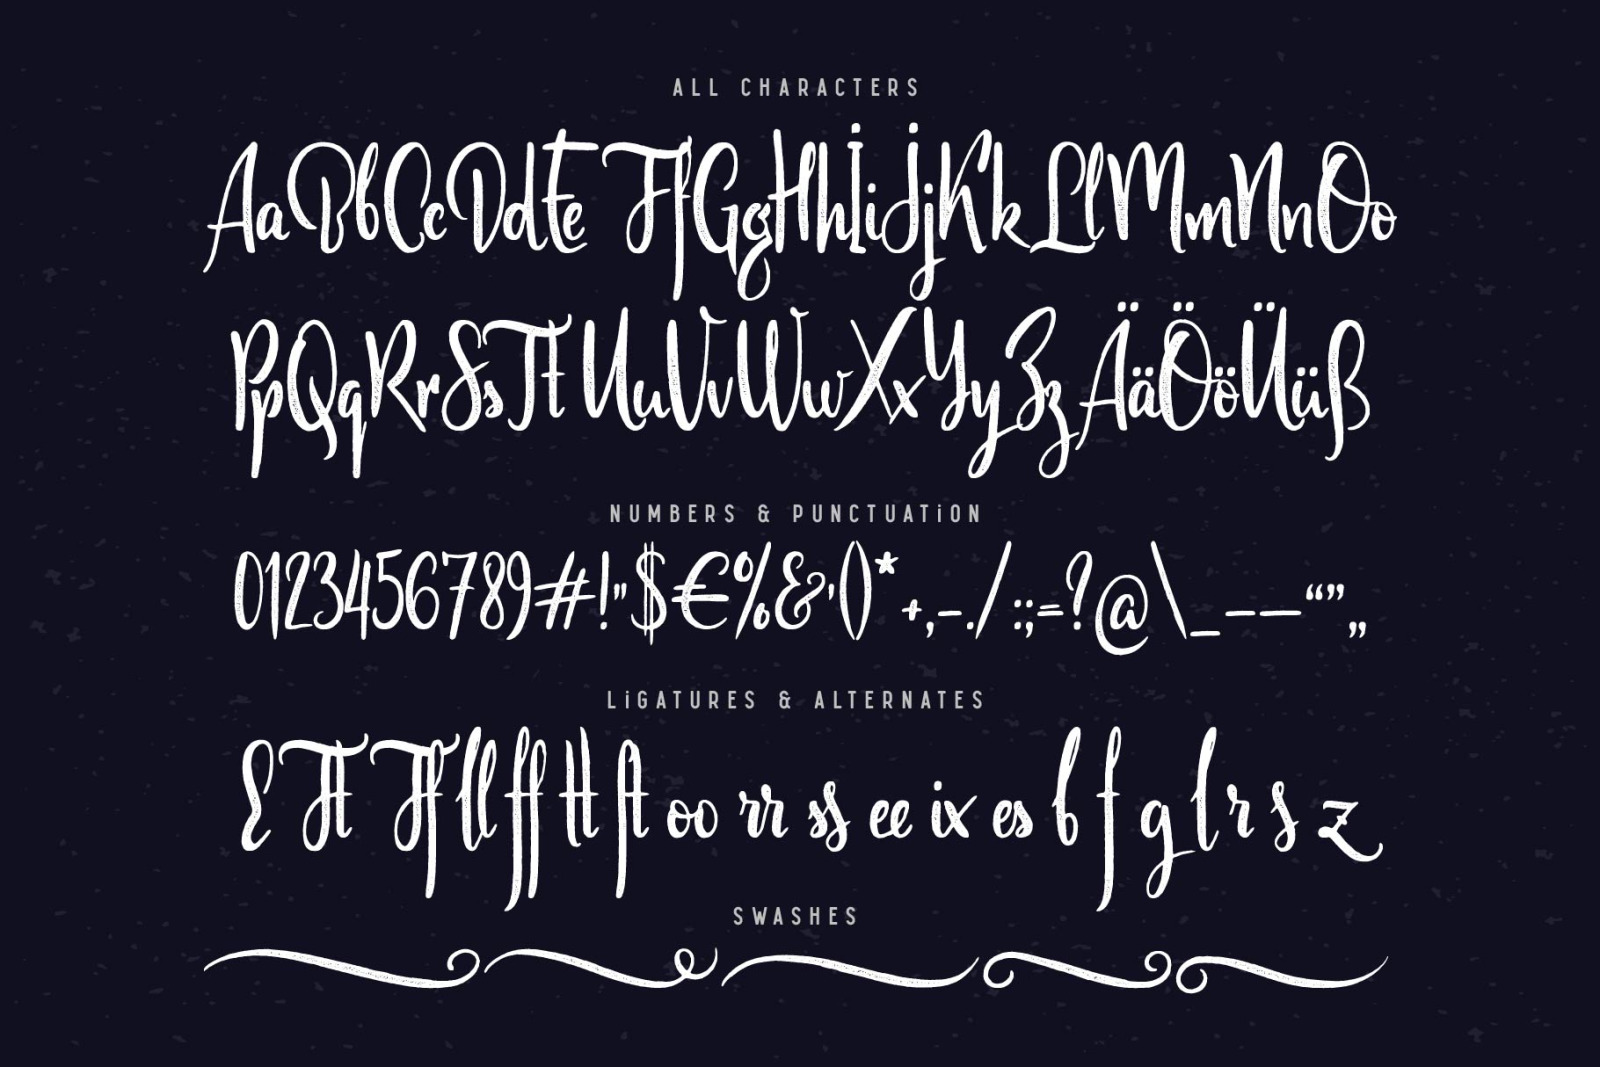 ALL CHARACTERS
AaBbCcDdEe FfGgHhIiJjKkLlMmNnOo
PpQqRrSsTt UuVvWwXxYyZzÄäÖöÜüß
NUMBERS & PUNCTUATiON
0123456789#!"$€%&'()*+,-./:;=?@\_–—“”„
LiGATURES & ALTERNATES
E Tt Tf ll ff tt ft oo rr ss ee ix es b f g l r s z
SWASHES